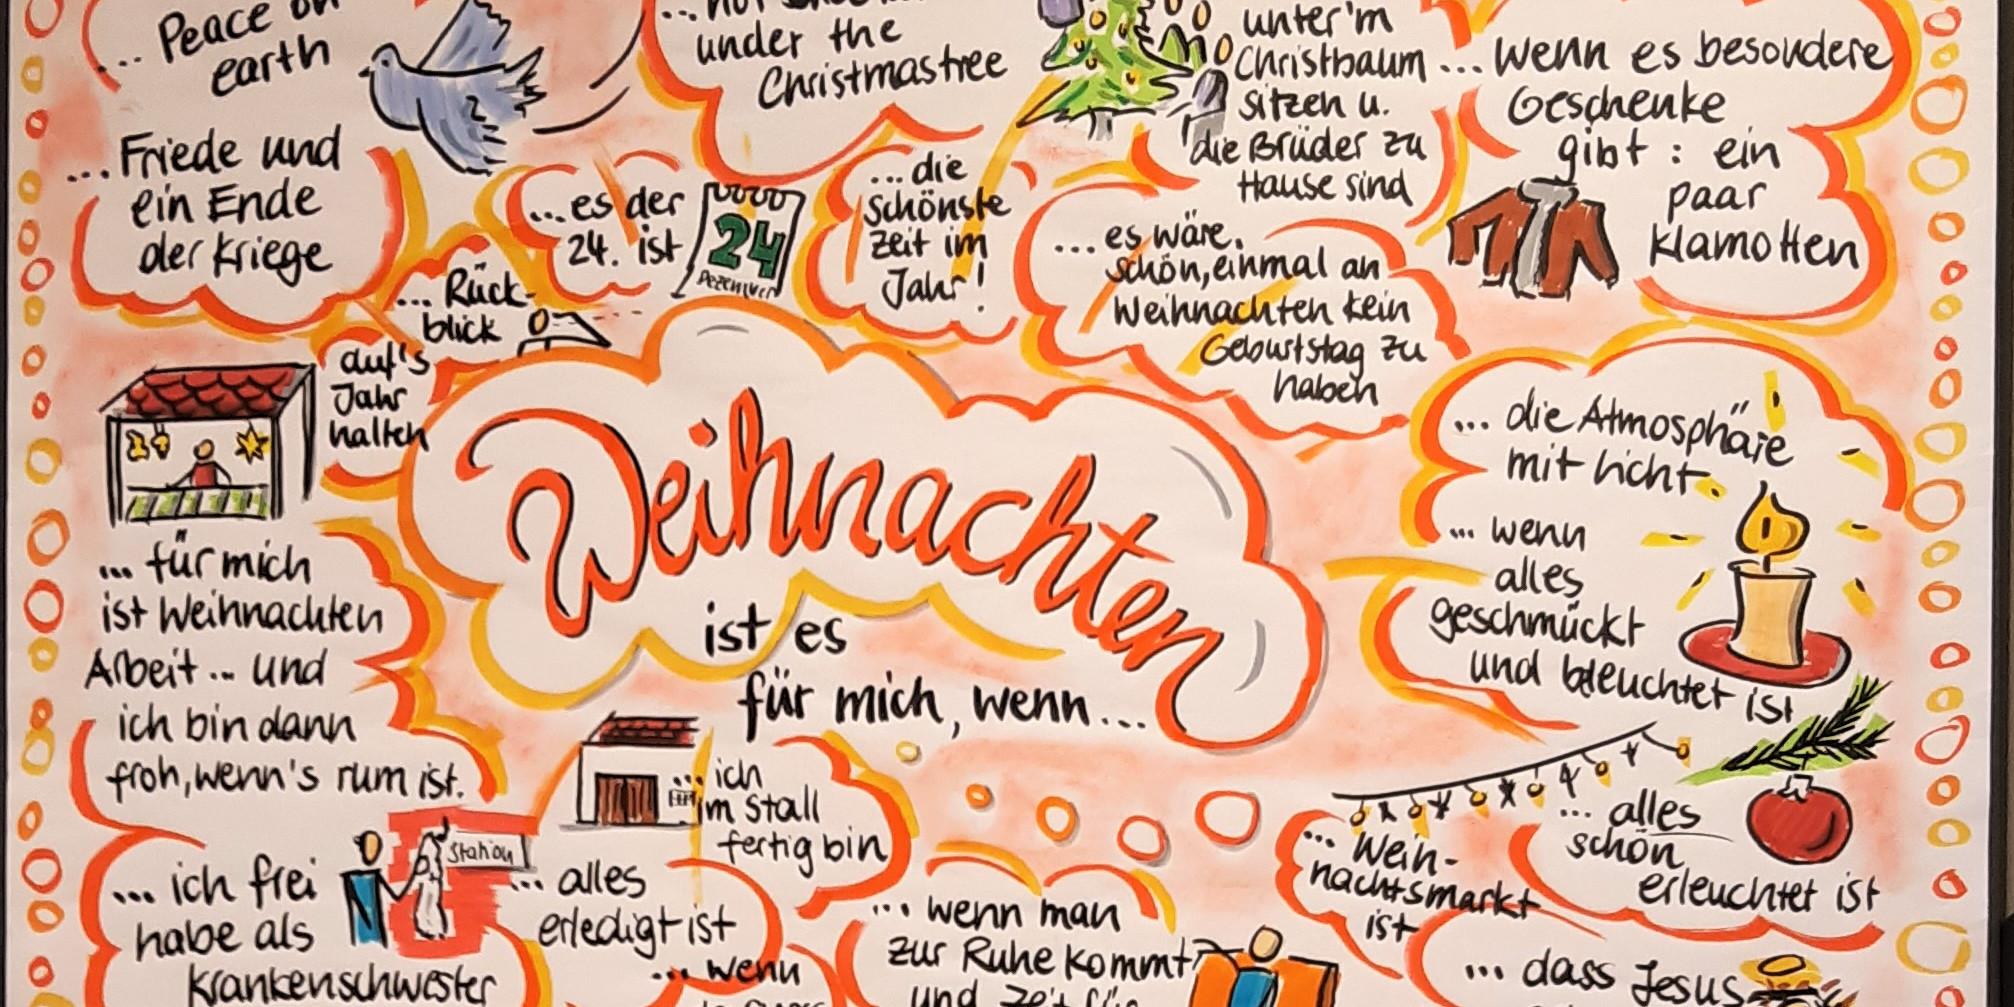 ... Peace on
earth
under the
Christmastree
unter'm
Christbaum
sitzen u.
die Brüder zu
Hause sind
... wenn es besondere
Geschenke
gibt : ein
paar
Klamotten
... Friede und
ein Ende
der Kriege
... es der
24. ist
24
Dezember
... die
schönste
Zeit im
Jahr!
... es wäre
schön, einmal an
Weihnachten kein
Geburtstag zu
haben
... Rück-
blick
auf's
Jahr
halten
... die Atmosphäre
mit Licht
... wenn
alles
geschmückt
und beleuchtet ist
Weihnachten
ist es
für mich, wenn...
... für mich
ist Weihnachten
Arbeit ... und
ich bin dann
froh, wenn's rum ist.
... ich
im Stall
fertig bin
... Wein-
nachtsmarkt
ist
... alles
schön
erleuchtet ist
... ich frei
habe als
Krankenschwester
Station
... alles
erledigt ist
... wenn
... wenn man
zur Ruhe kommt
und Zeit für
... dass Jesus